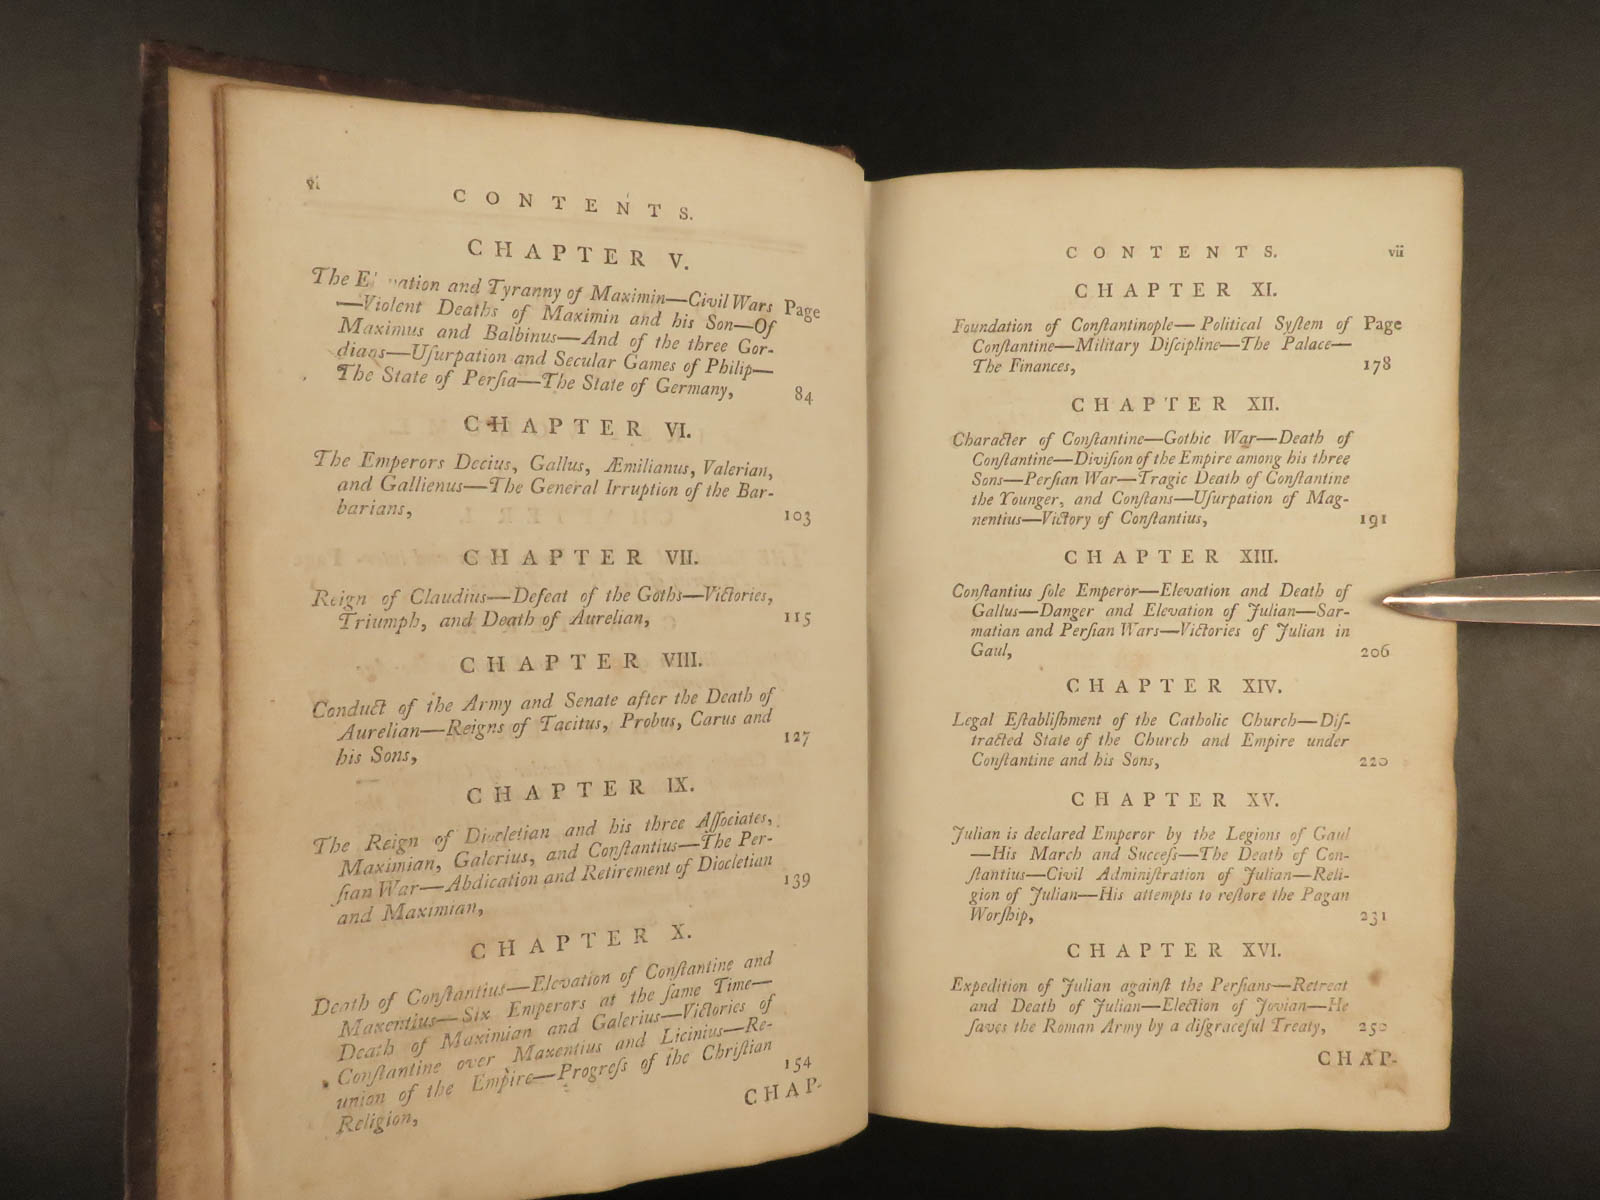 vi
CONTENTS.
CHAPTER V.
The and Tyranny of Maximin—Civil Wars Page
—Violent Deaths of Maximin and his Son—Of
Maximus and Balbinus—And of the three Gor-
dians—Uſurpation and Secular Games of Philip—
The State of Perſia—The State of Germany, 84
CHAPTER VI.
The Emperors Decius, Gallus, Æmilianus, Valerian,
and Gallienus—The General Irruption of the Bar-
barians, 103
CHAPTER VII.
Reign of Claudius—Defeat of the Goths—Victories,
Triumph, and Death of Aurelian, 115
CHAPTER VIII.
Conduct of the Army and Senate after the Death of
Aurelian—Reigns of Tacitus, Probus, Carus and
his Sons, 127
CHAPTER IX.
The Reign of Diocletian and his three Aſſociates,
Maximian, Galerius, and Conſtantius—The Per-
ſian War—Abdication and Retirement of Diocletian
and Maximian, 139
CHAPTER X.
Death of Conſtantius—Elevation of Conſtantine and
Maxentius—Six Emperors at the ſame Time—
Death of Maximian and Galerius—Victories of
Conſtantine over Maxentius and Licinius—Re-
union of the Empire—Progreſs of the Chriſtian
Religion, 154
CHAP-
CONTENTS. vii
CHAPTER XI.
Foundation of Conſtantinople—Political Syſtem of Page
Conſtantine—Military Diſcipline—The Palace—
The Finances, 178
CHAPTER XII.
Character of Conſtantine—Gothic War—Death of
Conſtantine—Diviſion of the Empire among his three
Sons—Perſian War—Tragic Death of Conſtantine
the Younger, and Conſtans—Uſurpation of Mag-
nentius—Victory of Conſtantius, 191
CHAPTER XIII.
Conſtantius ſole Emperor—Elevation and Death of
Gallus—Danger and Elevation of Julian—Sar-
matian and Perſian Wars—Victories of Julian in
Gaul, 206
CHAPTER XIV.
Legal Eſtabliſhment of the Catholic Church—Diſ-
tracted State of the Church and Empire under
Conſtantine and his Sons, 220
CHAPTER XV.
Julian is declared Emperor by the Legions of Gaul
—His March and Succeſs—The Death of Con-
ſtantius—Civil Adminiſtration of Julian—Reli-
gion of Julian—His attempts to reſtore the Pagan
Worſhip, 231
CHAPTER XVI.
Expedition of Julian againſt the Perſians—Retreat
and Death of Julian—Election of Jovian—He
ſaves the Roman Army by a diſgraceful Treaty, 250
CHAP-